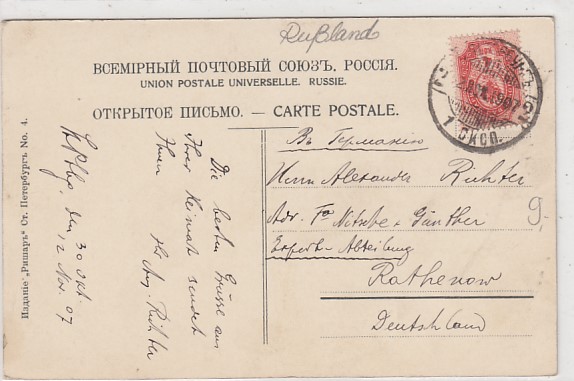 Rußland
ВСЕМІРНЫЙ ПОЧТОВЫЙ СОЮЗЪ. РОССІЯ.
UNION POSTALE UNIVERSELLE. RUSSIE.
ОТКРЫТОЕ ПИСЬМО. — CARTE POSTALE.
1907
1 ЭКСП.
Въ Германію
Herrn Alexander Richter
Adr. Fa Nitsche & Günther
Export-Abteilung
Rathenow
Deutschland
9.-
St. Pbg, den 30 Okt.
12 Nov. 07
Die besten Grüsse aus
Ihrer Heimat sendet
Ihnen
Aug. Richter
Изданіе „Ришаръ" Ст. Петербургъ No. 4.